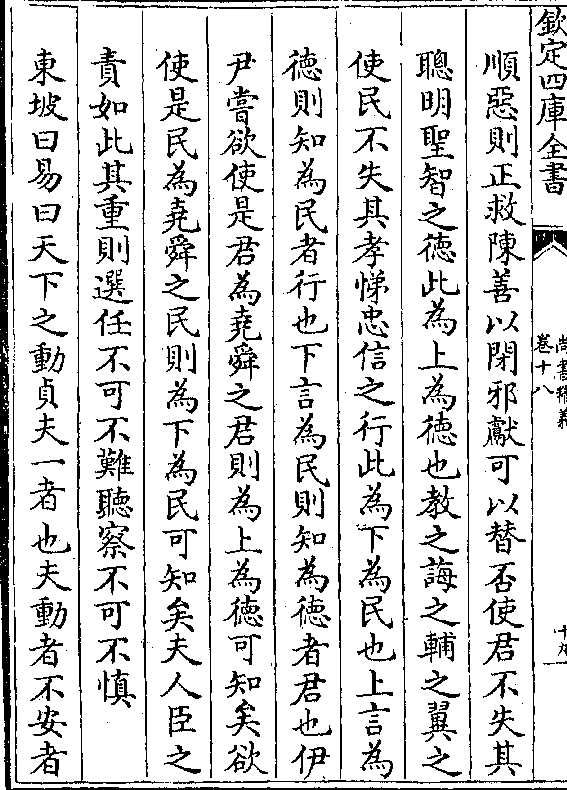 欽定四庫全書
卷十八
尚書精義
十九
順惡則正救陳善以閉邪獻可以替否使君不失其
聰明聖智之德此為上為德也教之誨之輔之翼之
使民不失其孝悌忠信之行此為下為民也上言為
德則知為民者行也下言為民則知為德者君也伊
尹嘗欲使是君為堯舜之君則為上為德可知矣欲
使是民為堯舜之民則為下為民可知矣夫人臣之
責如此其重則選任不可不難聽察不可不慎
東坡曰易曰天下之動貞夫一者也夫動者不安者